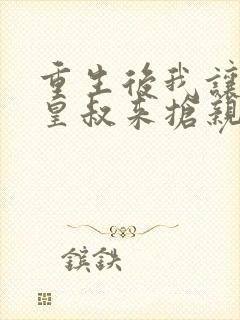 重生後我讓
皇叔來搶親
鑌鉄